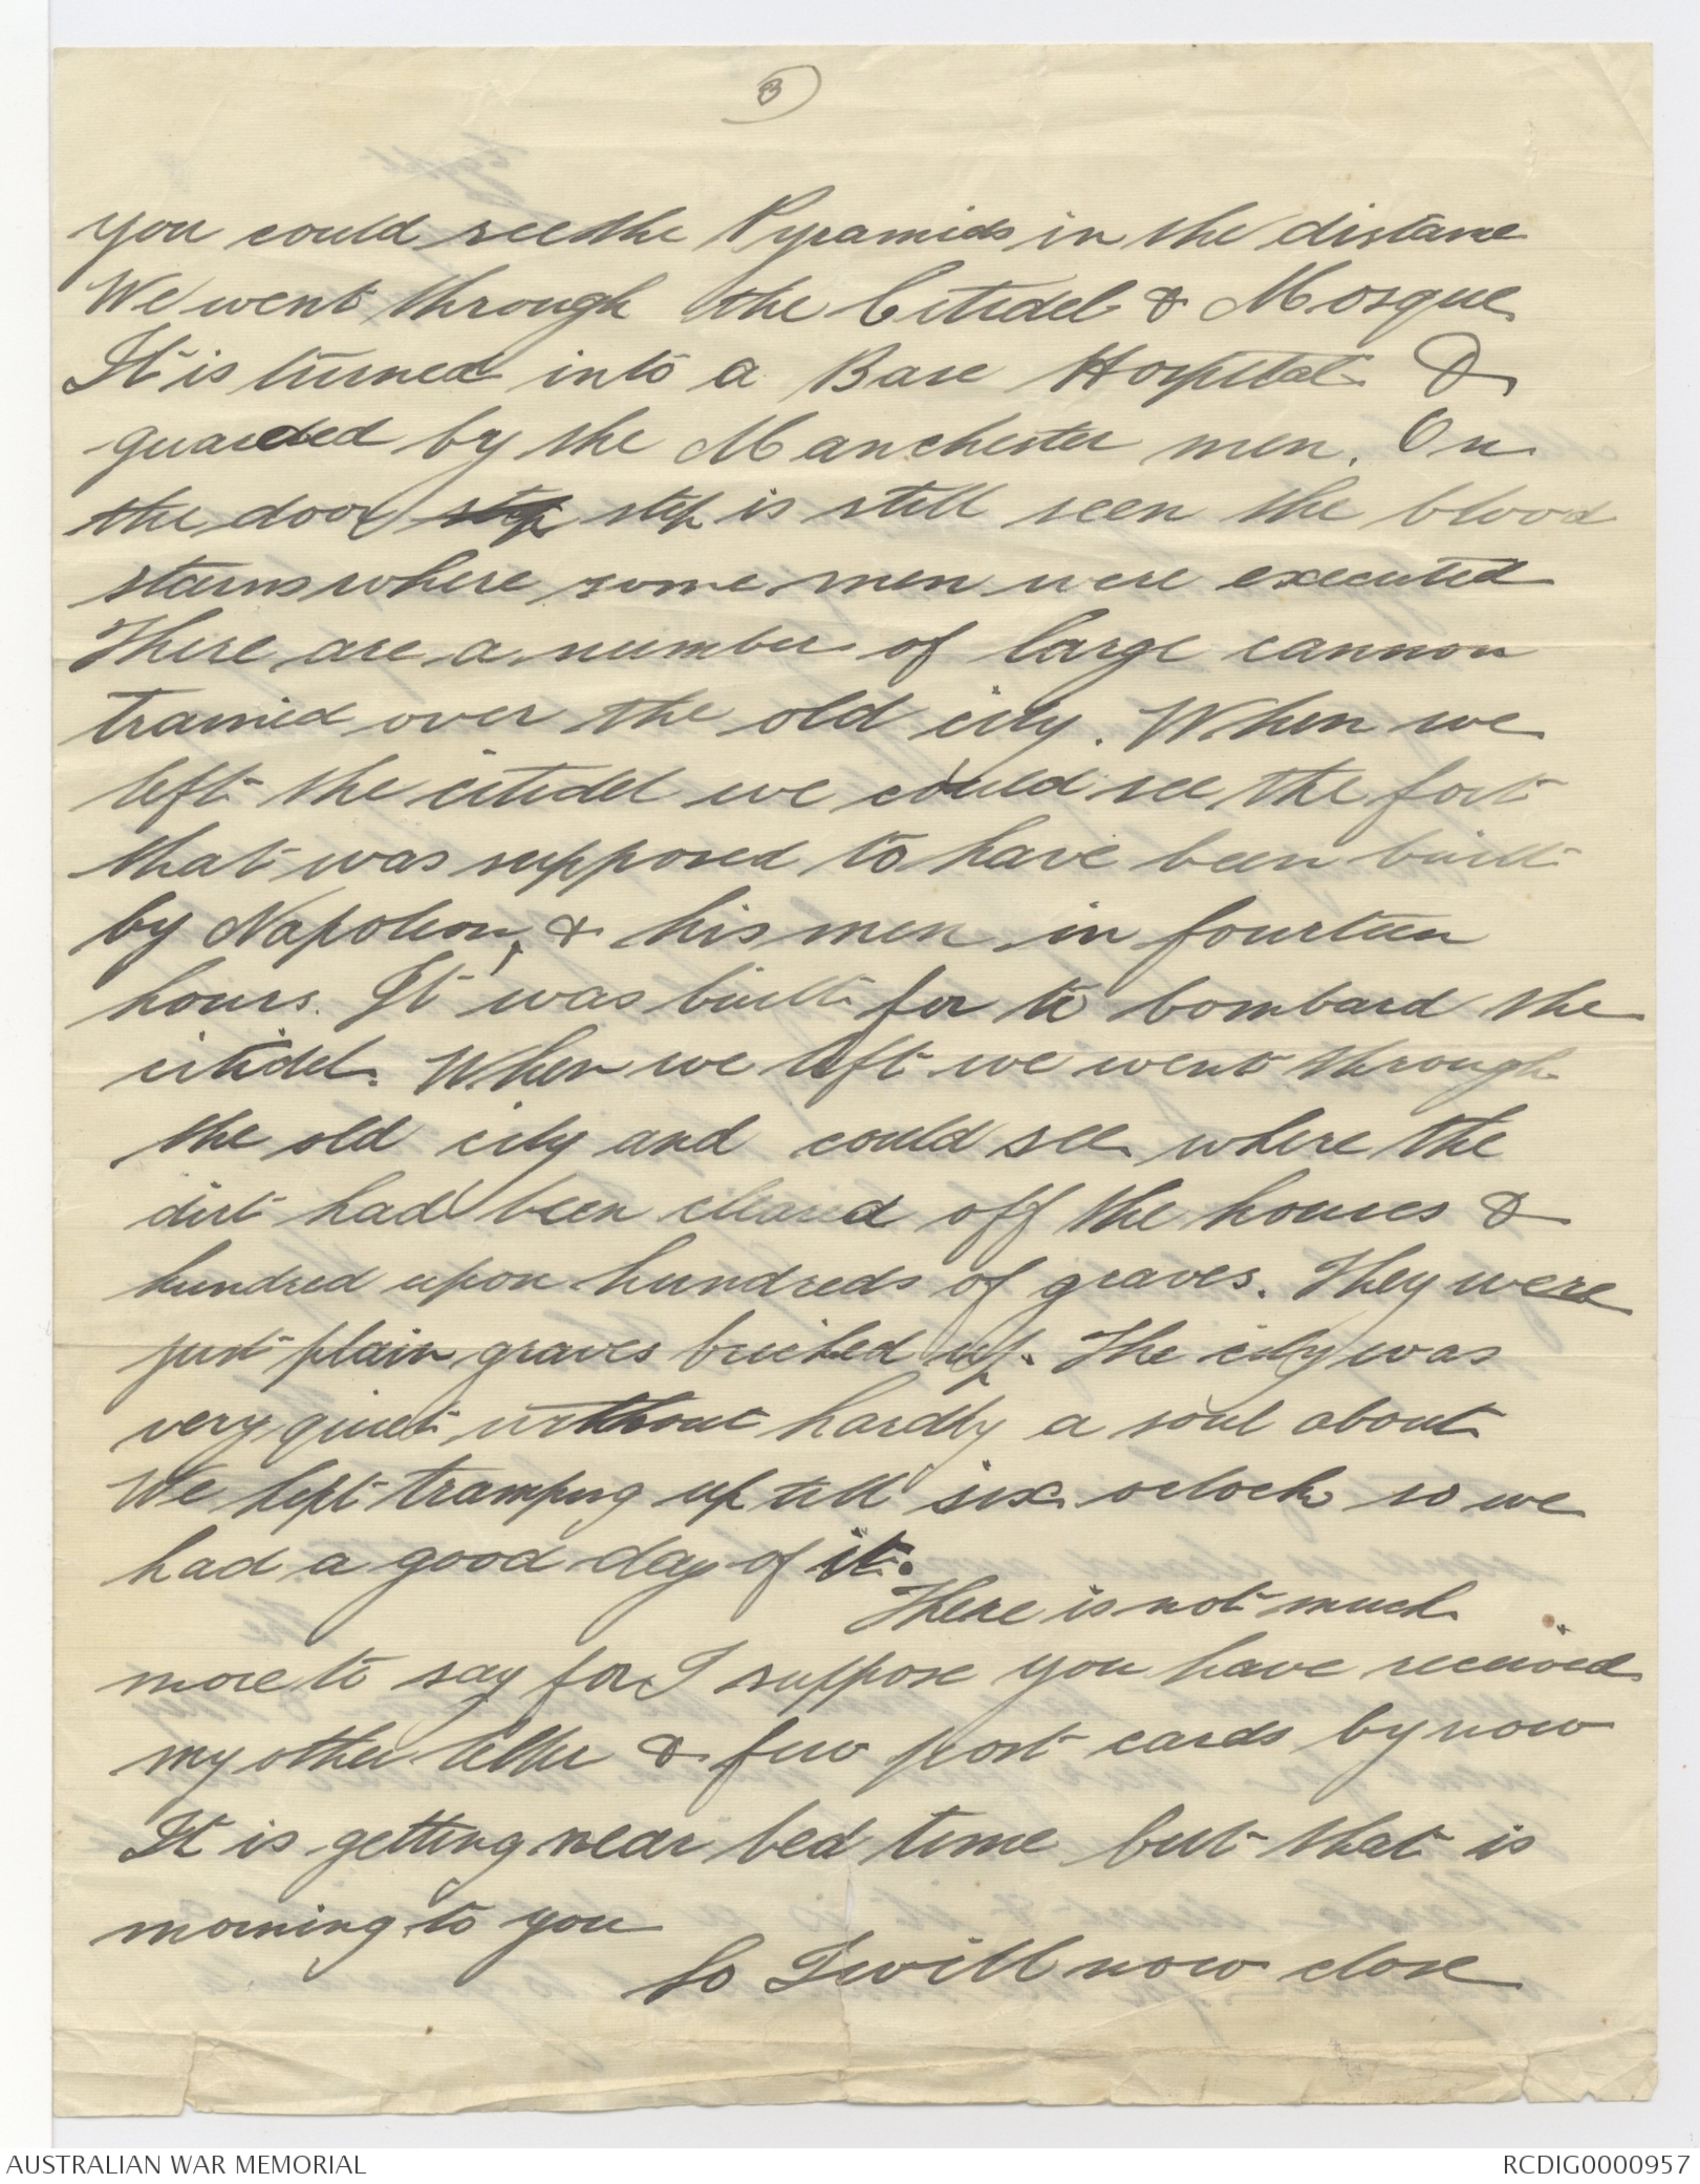 3
you could see the Pyramids in the distance
We went through the Citidel & Mosque
It is turned into a Base Hospital &
guarded by the Manchester men. On
the door step step is still seen the blood
stains where some men were executed
There are a number of large cannon
trained over the old city. When we
left the citidel we could see the fort
that was supposed to have been built
by Napoleon, & his men in fourteen
hours. It was built for to bombard the
citidel. When we left we went through
the old city and could see where the
dirt had been cleared off the houses &
hundred upon hundreds of graves. They were
just plain graves bricked up. The city was
very quiet without hardly a soul about
We kept tramping up till six oclock so we
had a good day of it.
There is not much
more to say for I suppose you have received
my other letter & few post cards by now
It is getting near bed time but that is
morning to you
So I will now close
AUSTRALIAN WAR MEMORIAL
RCDIG0000957